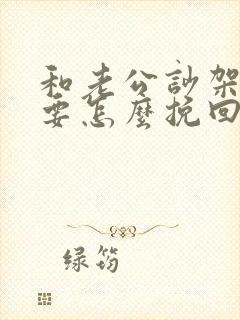 和老公訃架
要怎麼挽回
绿筠